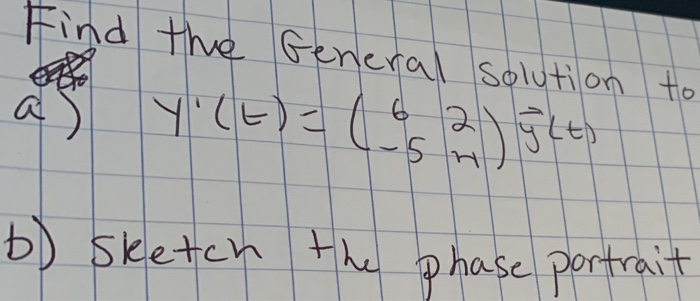 Find the General solution to
a) y'(t) = ( 6 2
-5 n ) y⃗(t)
b) Sketch the phase portrait